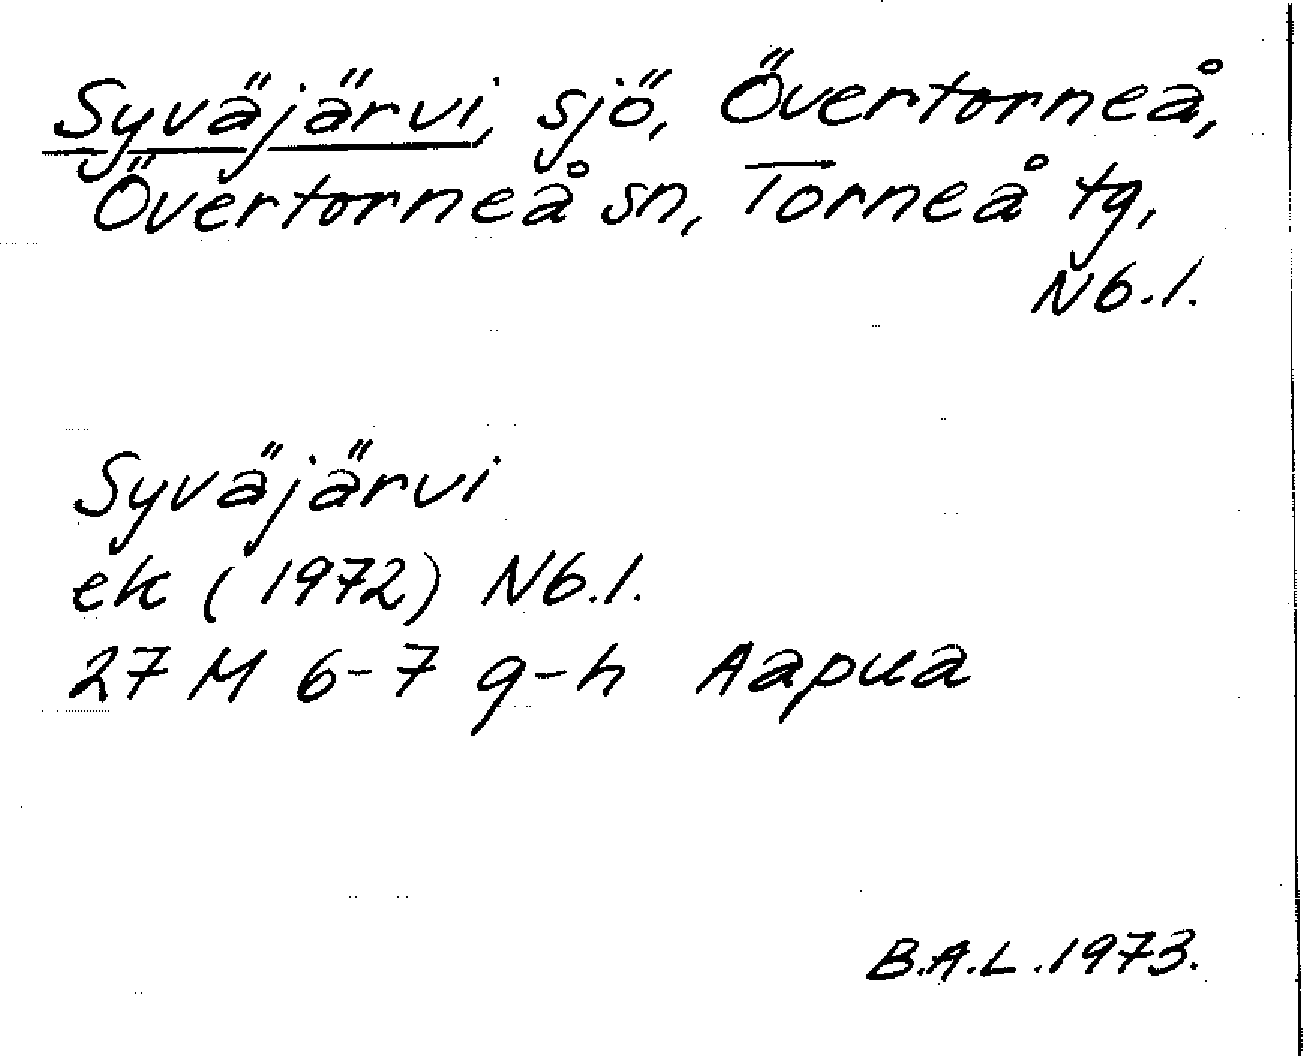 Syväjärvi, sjö, Övertorneå,
Övertorneå sn, Torneå tg,
Nb.l.
Syväjärvi
ek (1972) Nb.l.
27 M 6-7 g-h Aapua
B.A.L. 1973.